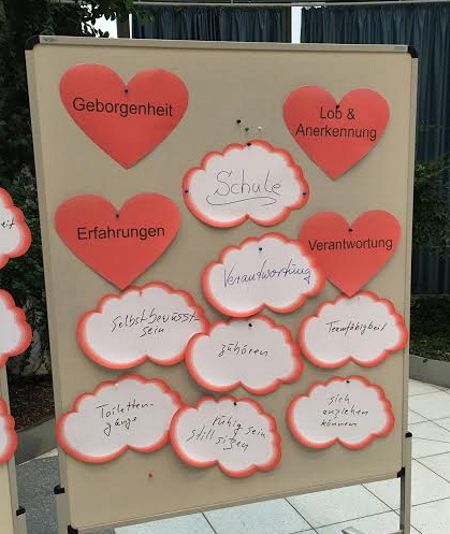 Geborgenheit
Lob &
Anerkennung
Schule
Erfahrungen
Verantwortung
Verantwortung
Selbstbewusst-
sein
zuhören
Teamfähigkeit
Toiletten-
gänge
ruhig sein
still sitzen
sich
anziehen
können